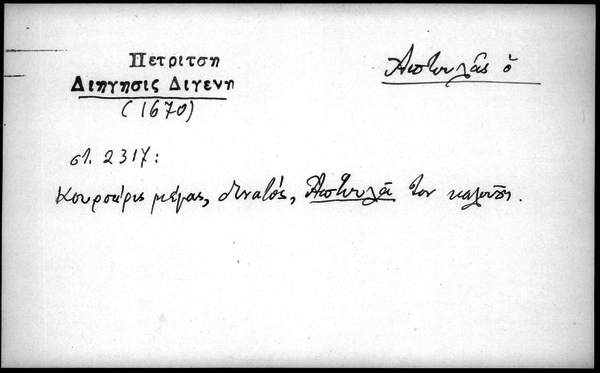 Πετρίτση
Διήγησις Διγενῆ
(1670)
Ἀποπλᾶς ὁ
στ. 2317:
Κουρσάρις μέγας, δυνατός, Ἀποπλᾶ τον καλοῦσι.